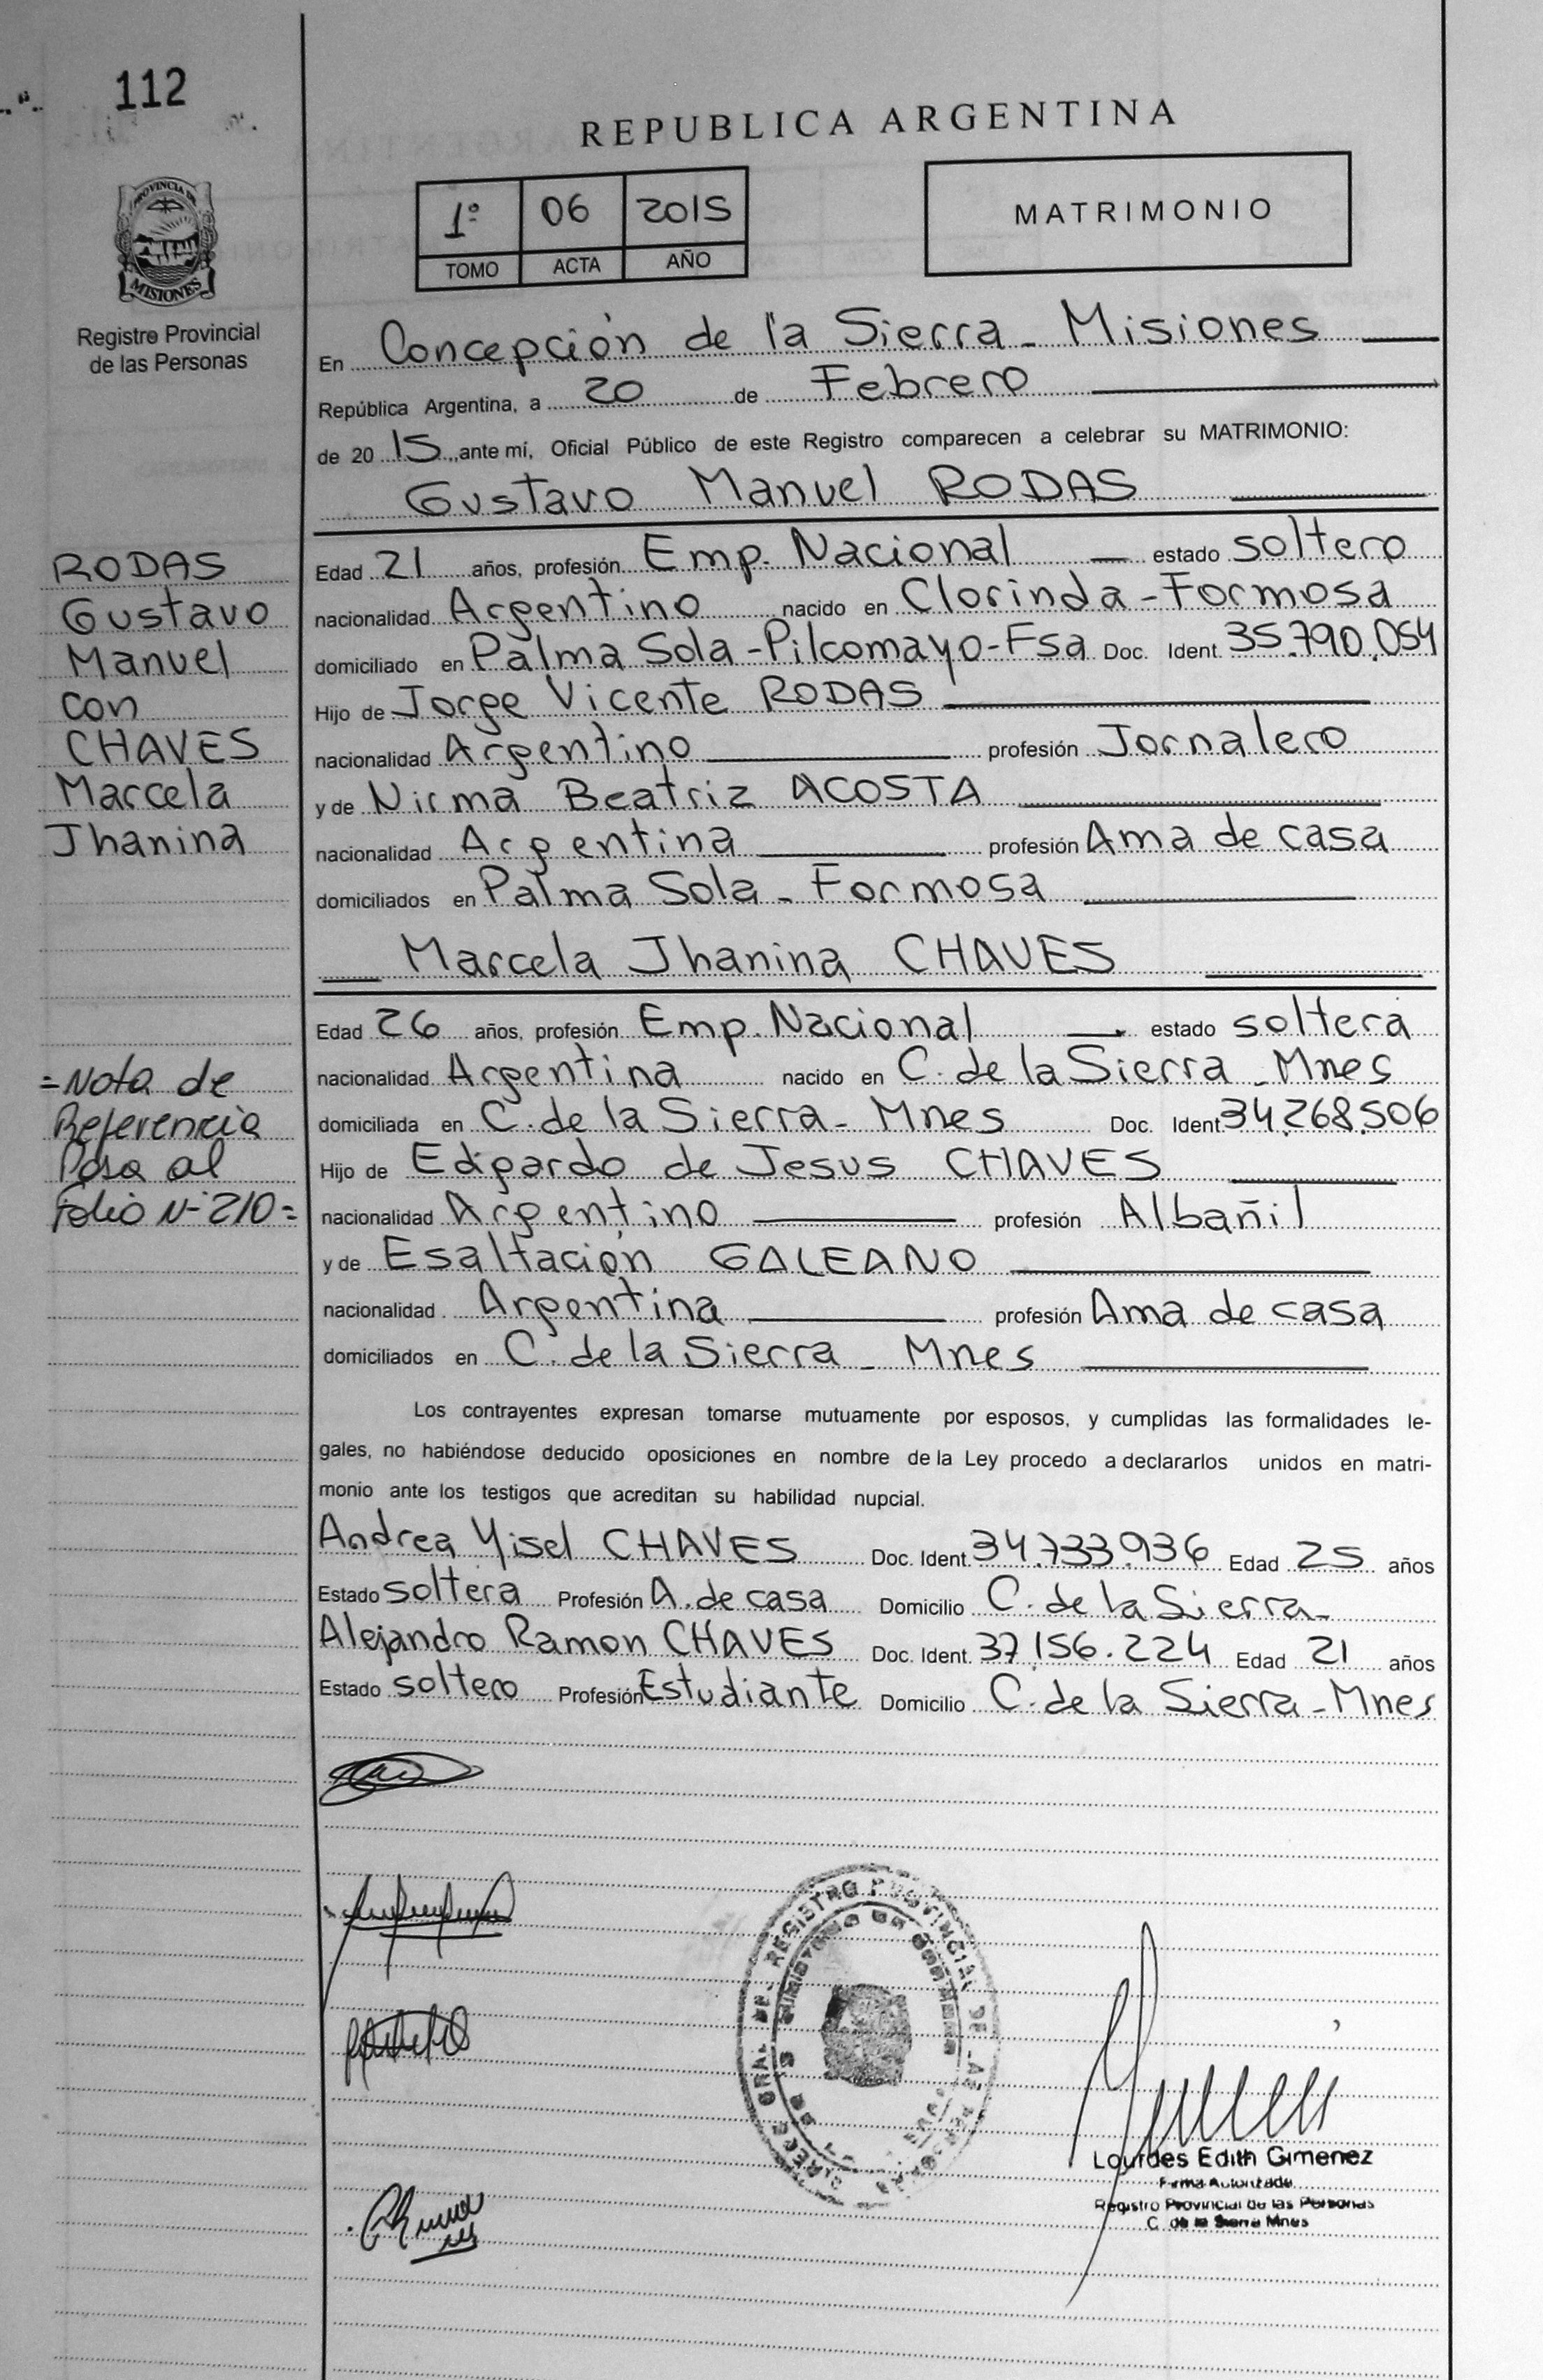 112
REPUBLICA ARGENTINA
1º 06 2015
TOMO ACTA AÑO
MATRIMONIO
PROVINCIA DE
MISIONES
Registro Provincial
de las Personas
En Concepción de la Sierra - Misiones
República Argentina, a 20 de Febrero
de 2015, ante mí, Oficial Público de este Registro comparecen a celebrar su MATRIMONIO:
Gustavo Manuel RODAS
RODAS
Gustavo
Manuel
con
CHAVES
Marcela
Jhanina
Edad 21 años, profesión Emp. Nacional — estado soltero
nacionalidad Argentino nacido en Clorinda - Formosa
domiciliado en Palma Sola - Pilcomayo - Fsa Doc. Ident. 35.790.054
Hijo de Jorge Vicente RODAS
nacionalidad Argentino profesión Jornalero
y de Nirma Beatriz ACOSTA
nacionalidad Argentina profesión Ama de casa
domiciliados en Palma Sola - Formosa
Marcela Jhanina CHAVES
Edad 26 años, profesión Emp. Nacional — estado soltera
nacionalidad Argentina nacido en C. de la Sierra - Mnes
domiciliada en C. de la Sierra - Mnes Doc. Ident. 34.268.506
Hijo de Edgardo de Jesus CHAVES
nacionalidad Argentino profesión Albañil
y de Esaltación GALEANO
nacionalidad Argentina profesión Ama de casa
domiciliados en C. de la Sierra - Mnes
=Nota de
Referencia
Pasa al
Folio Nº 210=
Los contrayentes expresan tomarse mutuamente por esposos, y cumplidas las formalidades le-
gales, no habiéndose deducido oposiciones en nombre de la Ley procedo a declararlos unidos en matri-
monio ante los testigos que acreditan su habilidad nupcial.
Andrea Yisel CHAVES Doc. Ident. 34.733.936 Edad 25 años
Estado soltera Profesión A. de casa Domicilio C. de la Sierra-
Alejandro Ramon CHAVES Doc. Ident. 37.156.224 Edad 21 años
Estado soltero Profesión Estudiante Domicilio C. de la Sierra - Mnes
REGISTRO PROVINCIAL DE LAS PERSONAS
Lourdes Edith Gimenez
Firma Autorizada
Registro Provincial de las Personas
C. de la Sierra Mnes